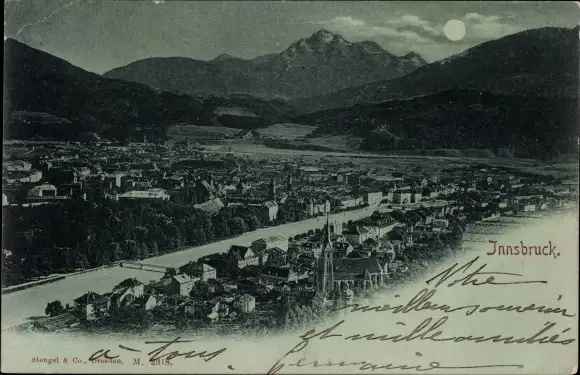 Innsbruck.
Notre
meilleur souvenir
et mille amitiés
à tous,
Germaine
Stengel & Co., Dresden. M. 2318.